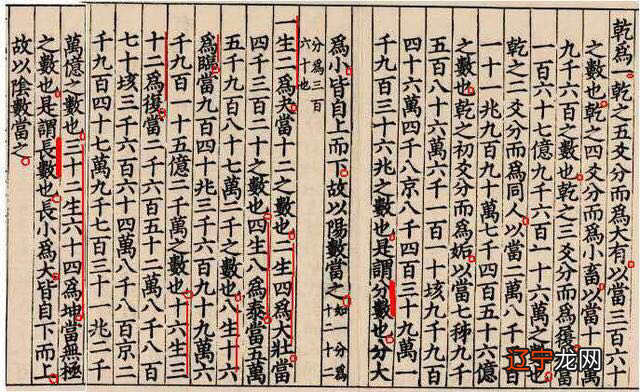 乾爲一乾之五爻分而爲大有以當三百六十
之數也乾之四爻分而爲小畜以當
九千六百之數也乾之三爻分而爲履
一百六十七億九千六百一十六萬之數
乾之三爻分而爲同人以當二萬八千
一十一兆九百九十萬七千四百五十六億
之數也乾之初爻分而爲姤以當七秭九千
五百八十六萬六千一百一十垓九千九百
四十六萬四千八京八千四百三十九萬一
千九百三十六兆之數也是謂分數也分大
爲小皆自上而下故以陽數當之
如一分爲
十二十二
分爲三百
六十也
一生二爲夬當十二之數也二生四爲大壯當
四千三百二十之數也四生八爲泰當五萬
五千九百八十七萬二千之數也八生十六
爲臨當九百四十兆三千六百九十九萬六
千九百一十五億二千萬之數也十六生三
十二爲復當二千六百五十二萬八千八百
七十垓三千六百六十四萬八千八百京二
千九百四十七萬九千七百三十一兆二千
萬億之數也三十二生六十四爲坤當無極
之數也是謂長數也長小爲大皆自下而上
故以陰數當之
辽宁龙网